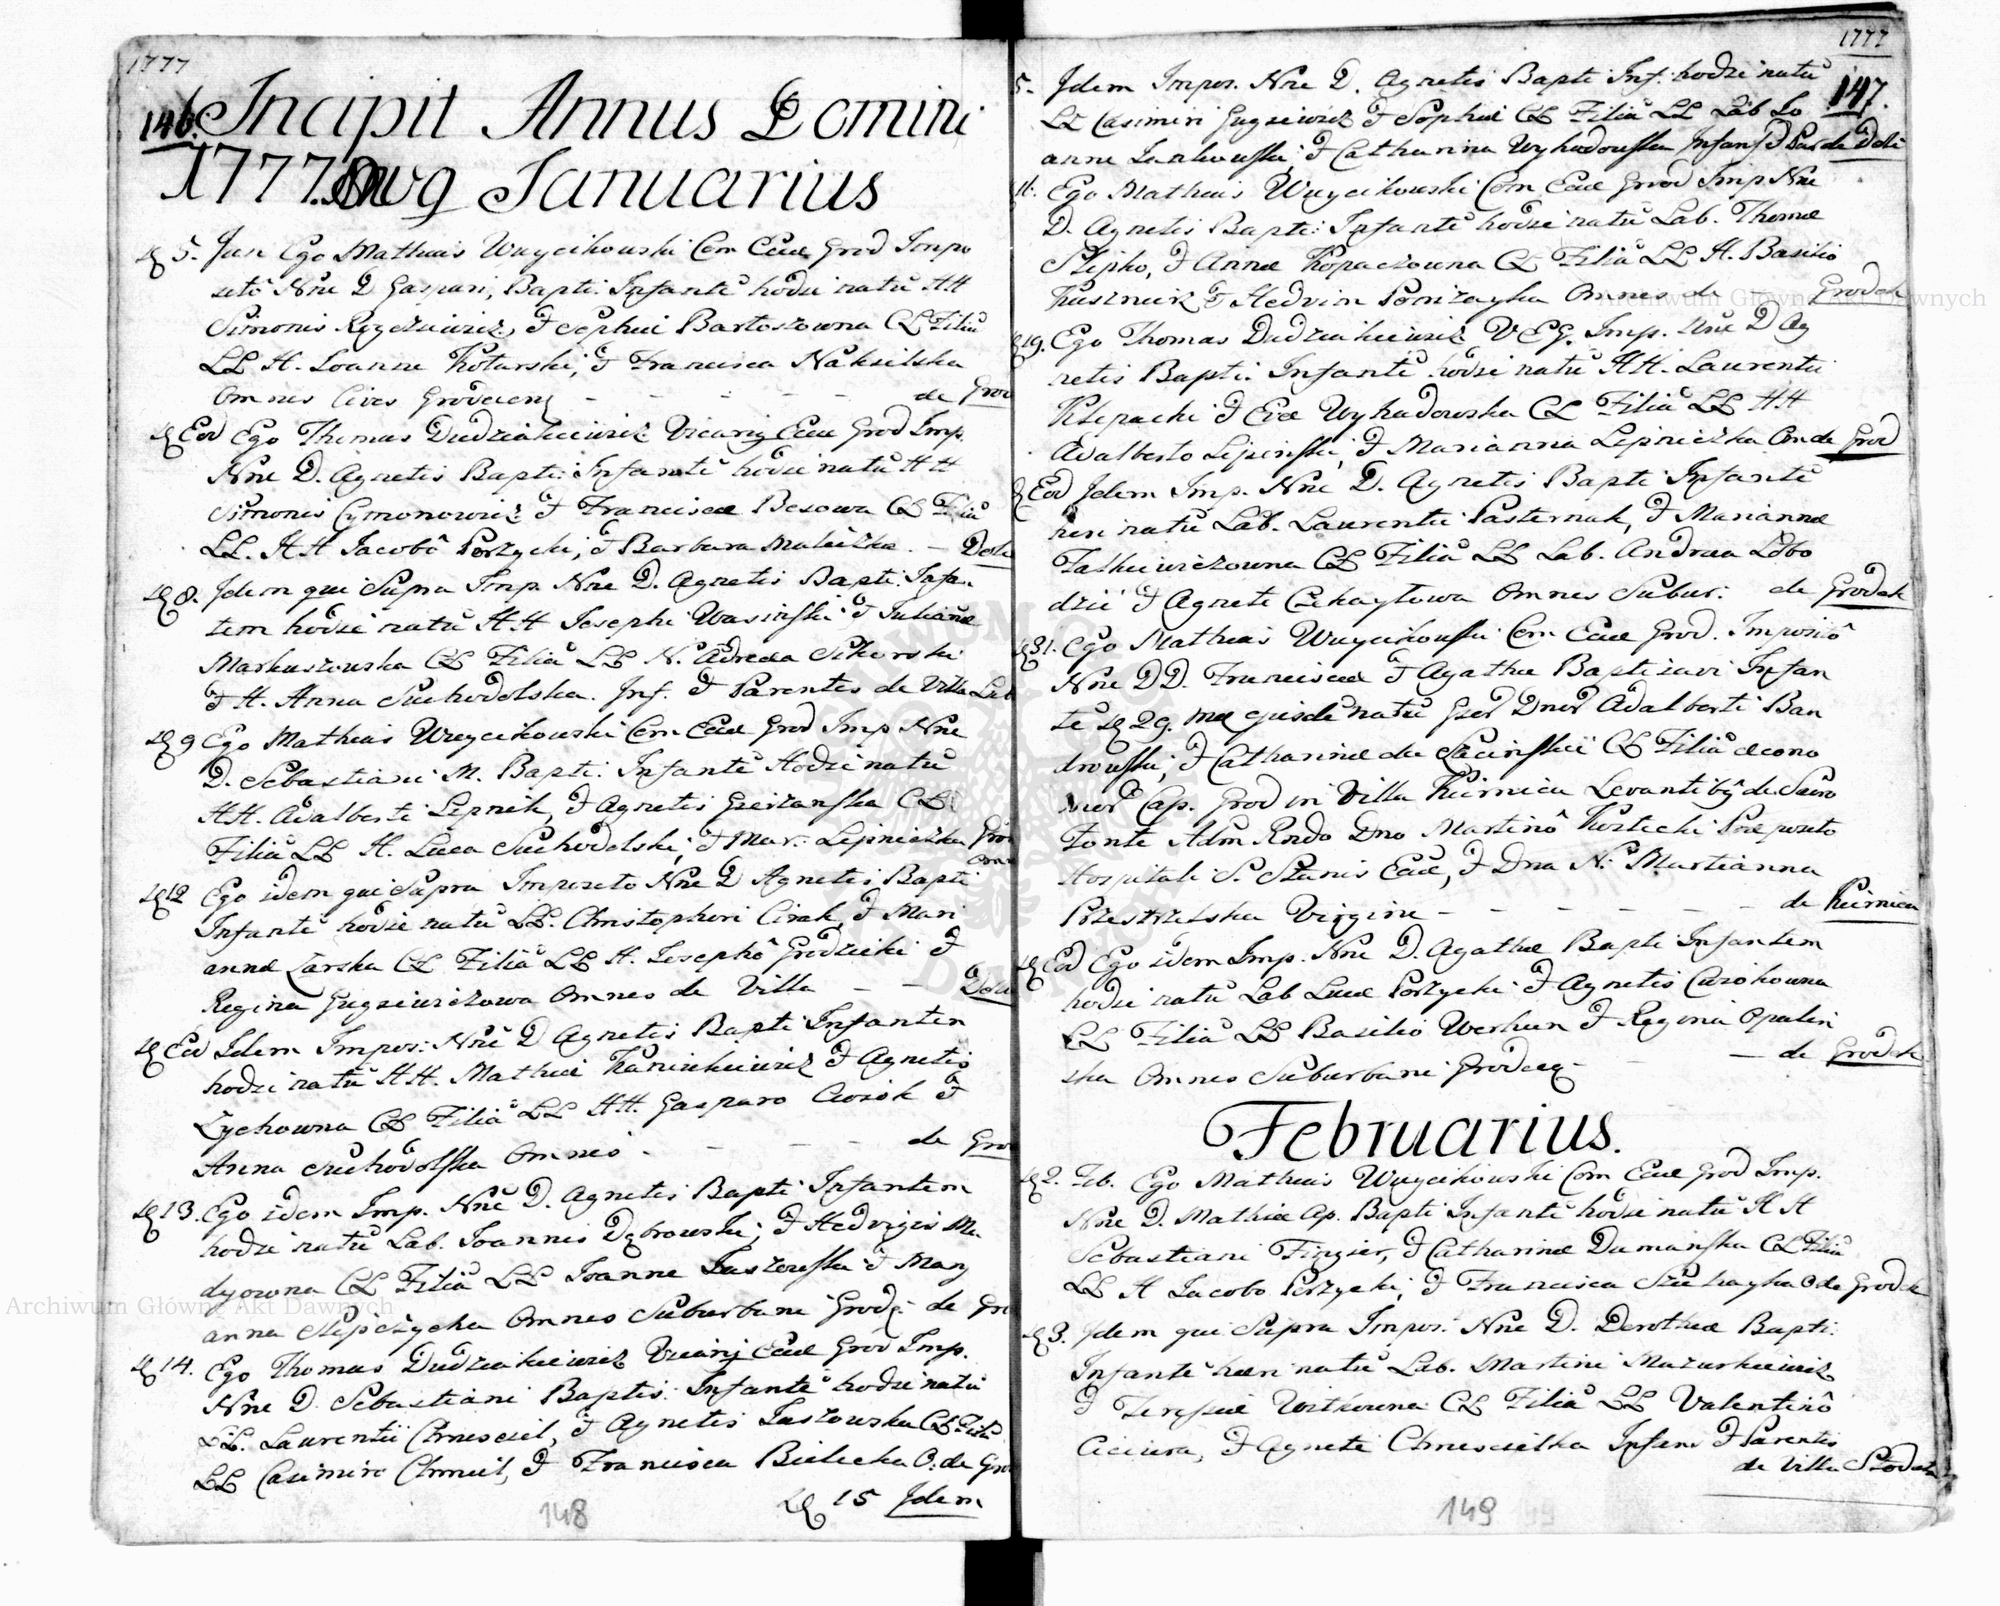 1777
146. Incipit Annus Domini
1777. Januarius
5. Jan Ego Mathias Wuycikowski Com Eccl Grod Impo
sito Nne D Gaspari, Bapti: Infantẽ hodie natũ HH
Simonis Ręczkiewicz, & Sophiæ Bartoszowna CL Filiũ
LL H. Joanne Kotarski, & Francisca Nakielska
Omnes Cives Grodecens - - - - - de Grod
Eod Ego Thomas Dudziakiewicz Vicariy Eccl Grod Imp.
Nne D. Agnetis Bapti: Infantẽ hodie natũ HH
Simonis Cymonowicz & Franciscæ Besowa CL Filiũ
LL. HH Jacobô Porzycki, & Barbara Malicka. -
8. Idem qui Supra Imp. Nne D. Agnetis Bapti: Infan
tem hodie natũ HH Josephi Wasinski & Julianæ
Markuszowska CL Filiã LL N. Andrea Sikorski
& H. Anna Suchodolska. Inf. & Parentes de Villa
9 Ego Mathias Wuycikowski Com Eccl Grod Imp Nne
D. Sebastiani M. Bapti: Infantẽ Hodie natũ
HH. Adalberti Lepnik, & Agnetis CL
Filiũ LL H. Luca Suchodolski, & Mar: Lepniczka Grod
12 Ego idem qui Supra Imposito Nne D Agnetis Bapti
Infantẽ hodie natũ LL. Christophori Cirak, & Mari
annæ Zarska CL Filiã LL H. Josephô Grodzicki &
Regina Gugsiewiczowa Omnes de Villa - -
Eod Idem Impos: Nne D Agnetis Bapti Infantem
hodie natũ HH. Mathiæ Kaminkiewicz & Agnetis
Zychowna CL Filiã LL HH. Gasparo Cwiok &
Anna Suchodolska Omnes - - - de Grod
13. Ego idem Imp. Nne D. Agnetis Bapti Infantem
hodie natũ Lab. Joannis Dąbrowski, & Hedvigis Ma
dyowna CL Filiã LL Joanne Jaszowski & Mary
anna Slipczycka Omnes Suburbani Grodę de Gro
14. Ego Thomas Dudziakiewicz Vicariy Eccl Grod Imp.
Nne D. Sebastiani Baptis: Infantẽ hodie natũ
LL. Laurentii Chmiesciel, & Agnetis Jaszowska CL Filiũ
LL Casimiro Chmiel, & Francisca Bielecka O: de Gro
15 Idem
148
1777
147.
5. Idem Impos. Nne D. Agnetis Bapti Inf: hodie natũ
LL Casimiri Gugsiewicz & Sophiæ CL Filiã LL Lab Jo
anne & Catharina Wyhodowska Infans & Par de
16. Ego Mathias Wuycikowski Com Eccl Grod Imp Nne
D. Agnetis Bapti: Infantẽ hodie natũ Lab. Thomæ
Slipko, & Annæ Kopaczowna CL Filiã LL H. Basilio
Kusznierz & Hedvim Omnes de - Grodek
19. Ego Thomas Dudziakiewicz V EG. Imp. Nne D Ag
netis Bapti: Infantẽ hodie natũ HH. Laurentii
Klepacki & Evæ Wyhadowska CL Filiã LL HH
Adalberto Lipinski, & Marianna Lepniczka Om de Grod
Eod Idem Imp. Nne D. Agnetis Bapti Infantẽ
heri natũ Lab. Laurentii Pasternak, & Mariannæ
Falkiewiczowna CL Filiã LL Lab. Andrea Lobo
dzic & Agneti Czekaytowa Omnes Subur: de Grodek
31. Ego Mathias Wuycikowski Com Eccl Grod. Impositô
Nne DD. Franciscæ & Agathæ Baptizavi Infan
tẽ 29. natũ Adalberti Ban
drowski, & Catharinæ de CL Filiã
Cap. Grod in Villa Kiernica Levantibg de Sacro
Fonte Adm Rndo Dno Martinô Præposito
Hospitali S. Stanis Eccl, & Dna N. Martianna
Przestrzelska Virgine - - - - - de Kiernica
Eod Ego idem Imp. Nne D. Agathæ Bapti Infantem
hodie natũ Lab Lucæ Porzycki & Agnetis Cwiokowna
CL Filiã LL Basilio Werhun & Regina Opalin
ska Omnes Suburbani Grodecę - - de Grodek
Februarius.
2. Feb. Ego Mathias Wuycikowski Com Eccl Grod Imp.
Nne D. Mathiæ Ap. Bapti Infantẽ hodie natũ HH
Sebastiani Fingier, & Catharinæ Damanska CL Filiũ
LL H Jacobo Porzycki, & Francisca O de Grodek
3. Idem qui Supra Impos: Nne D. Dorotheæ Bapti:
Infantẽ heri natũ Lab. Martini Mazurkiewicz
& Teresiæ Witkowna CL Filiã LL Valentinô
Ciciura, & Agneti Chmiescielka Infans & Parentes
de Villa
149
Archiwum Główne Akt Dawnych
Archiwum Główne Akt Dawnych